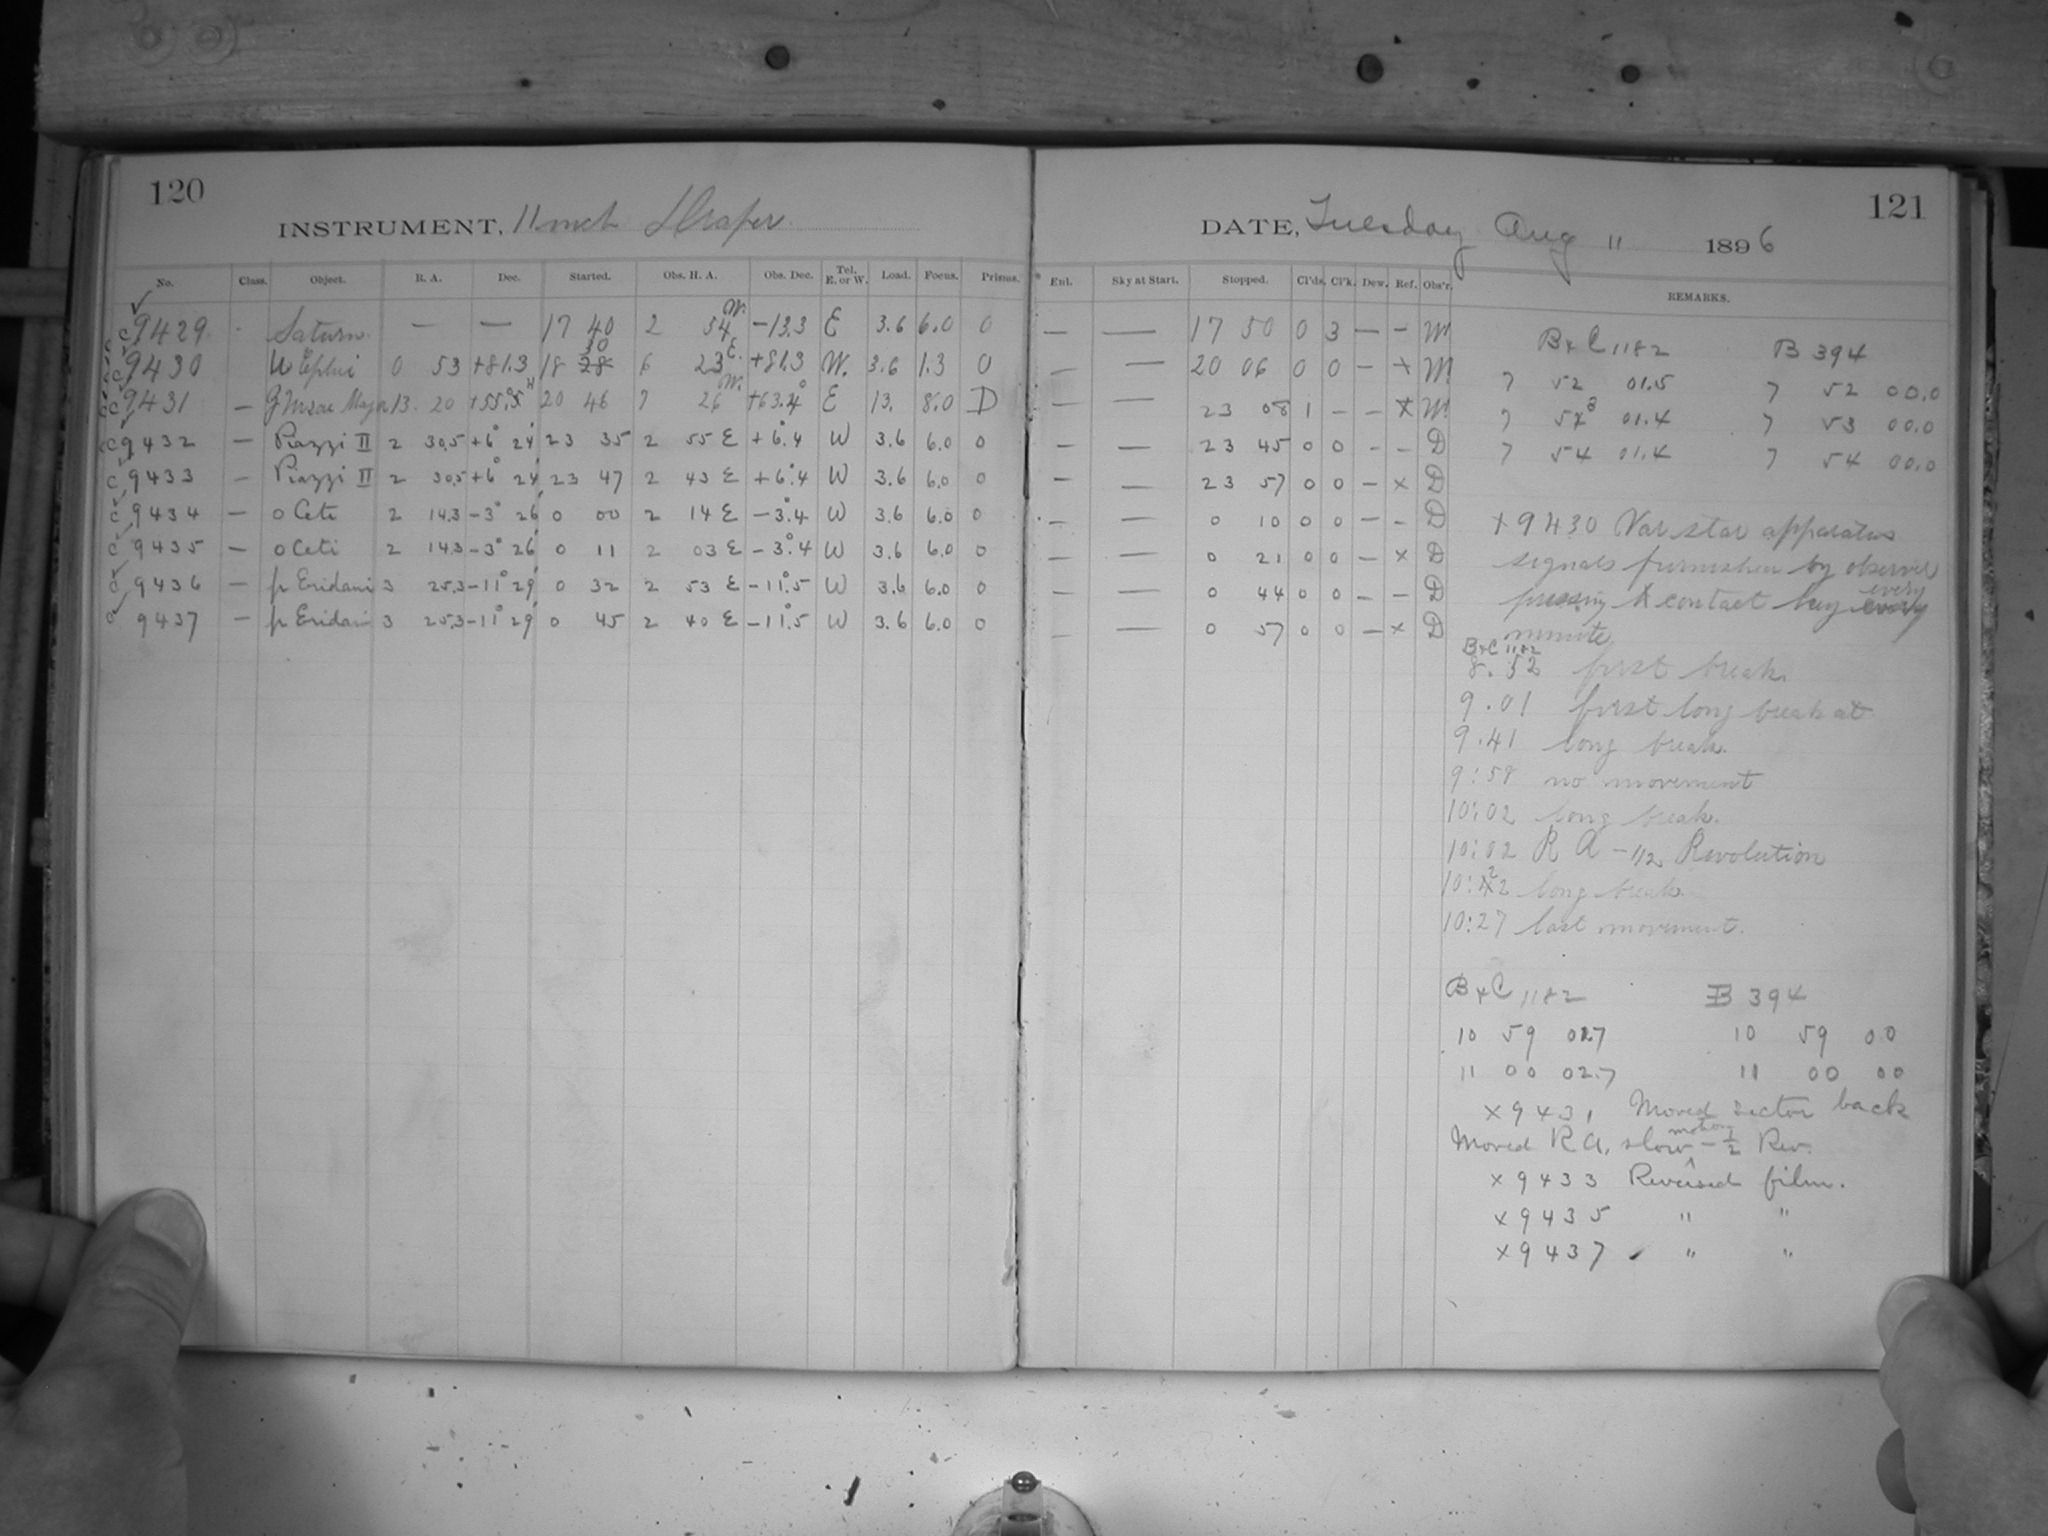 120
INSTRUMENT, 11 inch Draper
No. Class. Object. R. A. Dec. Started. Obs. H. A. Obs. Dec. Tel. E. or W. Load. Focus. Prisms.
c 9429 Saturn — — 17 40 2 54 W. -13.3 E 3.6 6.0 0
c 9430 U Cephei 0 53 +81.3 18 28 30 6 23 E. +81.3 W. 3.6 1.3 0
c 9431 — 13 20 +55.5 20 46 7 26 W. +63.4° E 13. 8.0 D
c 9432 — Piazzi II 2 30.5 +6° 24' 23 35 2 55 E +6°.4 W 3.6 6.0 0
c 9433 — Piazzi II 2 30.5 +6° 24' 23 47 2 43 E +6°.4 W 3.6 6.0 0
c 9434 — o Ceti 2 14.3 -3° 26' 0 00 2 14 E -3°.4 W 3.6 6.0 0
c 9435 — o Ceti 2 14.3 -3° 26' 0 11 2 03 E -3°.4 W 3.6 6.0 0
c 9436 — p Eridani 3 25.3 -11° 29' 0 32 2 53 E -11°.5 W 3.6 6.0 0
c 9437 — p Eridani 3 25.3 -11° 29' 0 45 2 40 E -11°.5 W 3.6 6.0 0
121
DATE, Tuesday Aug 11 1896
Enl. Sky at Start. Stopped. Cl'ds. Cl'k. Dew. Ref. Obs'r. REMARKS.
— — 17 50 0 3 — - M
— — 20 06 0 0 — x M
— — 23 08 1 - - x M
— — 23 45 0 0 - - D
— — 23 57 0 0 — x D
— — 0 10 0 0 — - D
— — 0 21 0 0 — x D
— — 0 44 0 0 - - D
— — 0 57 0 0 — x D
B & C 1182 B 394
7 52 01.5 7 52 00.0
7 53 01.4 7 53 00.0
7 54 01.4 7 54 00.0
x 9430 Var star apparatus
signals furnished by observer
pressing contact key every
minute
B & C 1182
8.52 first break.
9.01 first long break at
9.41 long break.
9:58 no movement
10:02 long break.
10:02 R A - 1/2 Revolution
10:22 long break
10:27 last movement.
B & C 1182 B 394
10 59 02.7 10 59 00
11 00 02.7 11 00 00
x 9431 Moved sector back
Moved R A. slow motion - 1/2 Rev.
x 9433 Reversed film.
x 9435 " "
x 9437 " "